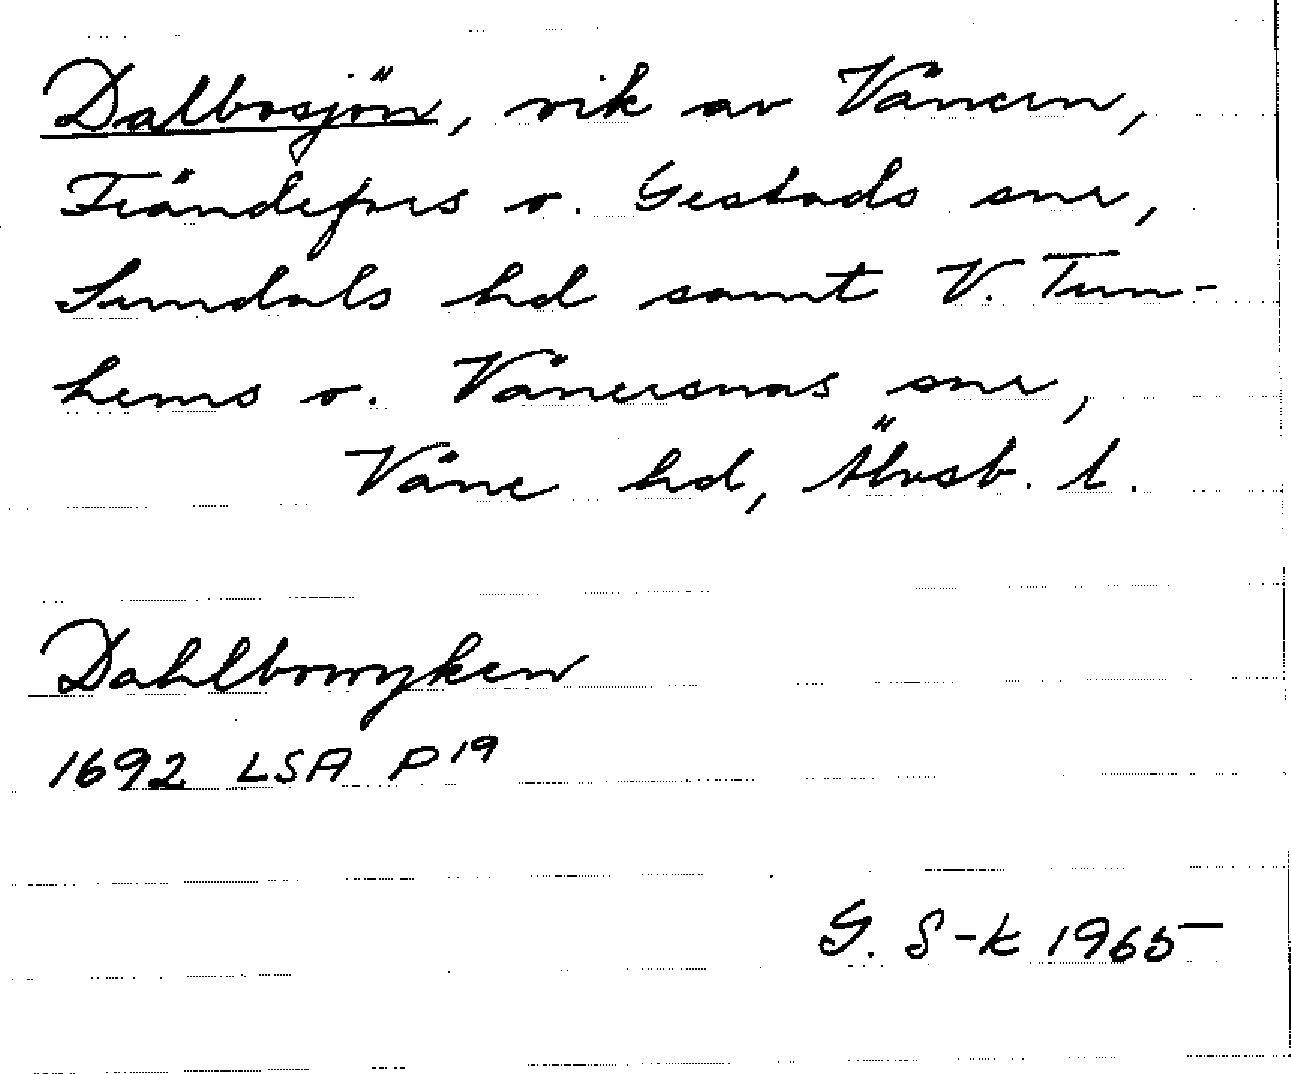 Dalbosjön, vik av Vänern,
Frändefors o. Gestads snr,
Sundals hd samt V. Tun-
hems o. Vänersnäs snr,
Väne hd, Älvsb. l.
Dahlbowyken
1692 LSA P19
G. S-k 1965